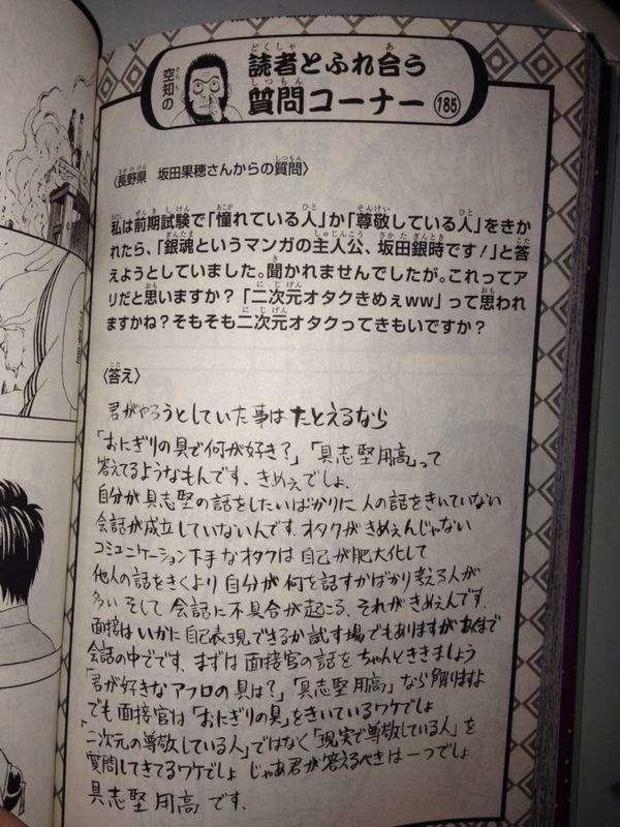 空知の
読者とふれ合う
質問コーナー 185
〈長野県　坂田果穂さんからの質問〉
私は前期試験で「憧れている人」か「尊敬している人」をきか
れたら、「銀魂というマンガの主人公、坂田銀時です！」と答
えようとしていました。聞かれませんでしたが。これってア
リだと思いますか？「二次元オタクきめぇww」って思われ
ますかね？そもそも二次元オタクってきもいですか？
〈答え〉
君がやろうとしていた事は たとえるなら
「おにぎりの具で何が好き？」「具志堅用高」って
答えてるようなもんです、きめぇでしょ.
自分が具志堅の話をしたいばかりに 人の話をきいていない
会話が成立していないんです.オタクがきめぇんじゃない
コミュニケーション下手なオタクは 自己が肥大化して
他人の話をきくより 自分が何を話すかばかり考える人が
多い そして 会話に不具合が起こる. それがきめえんです.
面接はいかに自己表現できるか試す場でもありますが あくまで
会話の中でです. まずは 面接官の話を ちゃんとききましょう
「君が好きなアフロの具は？」「具志堅用高」なら解りますよ
でも面接官は「おにぎりの具」をきいているワケでしょ
「二次元の尊敬している人」ではなく「現実で尊敬している人」を
質問してきてるワケでしょ じゃあ君が答えるべきは一つでしょ
具志堅用高 です.